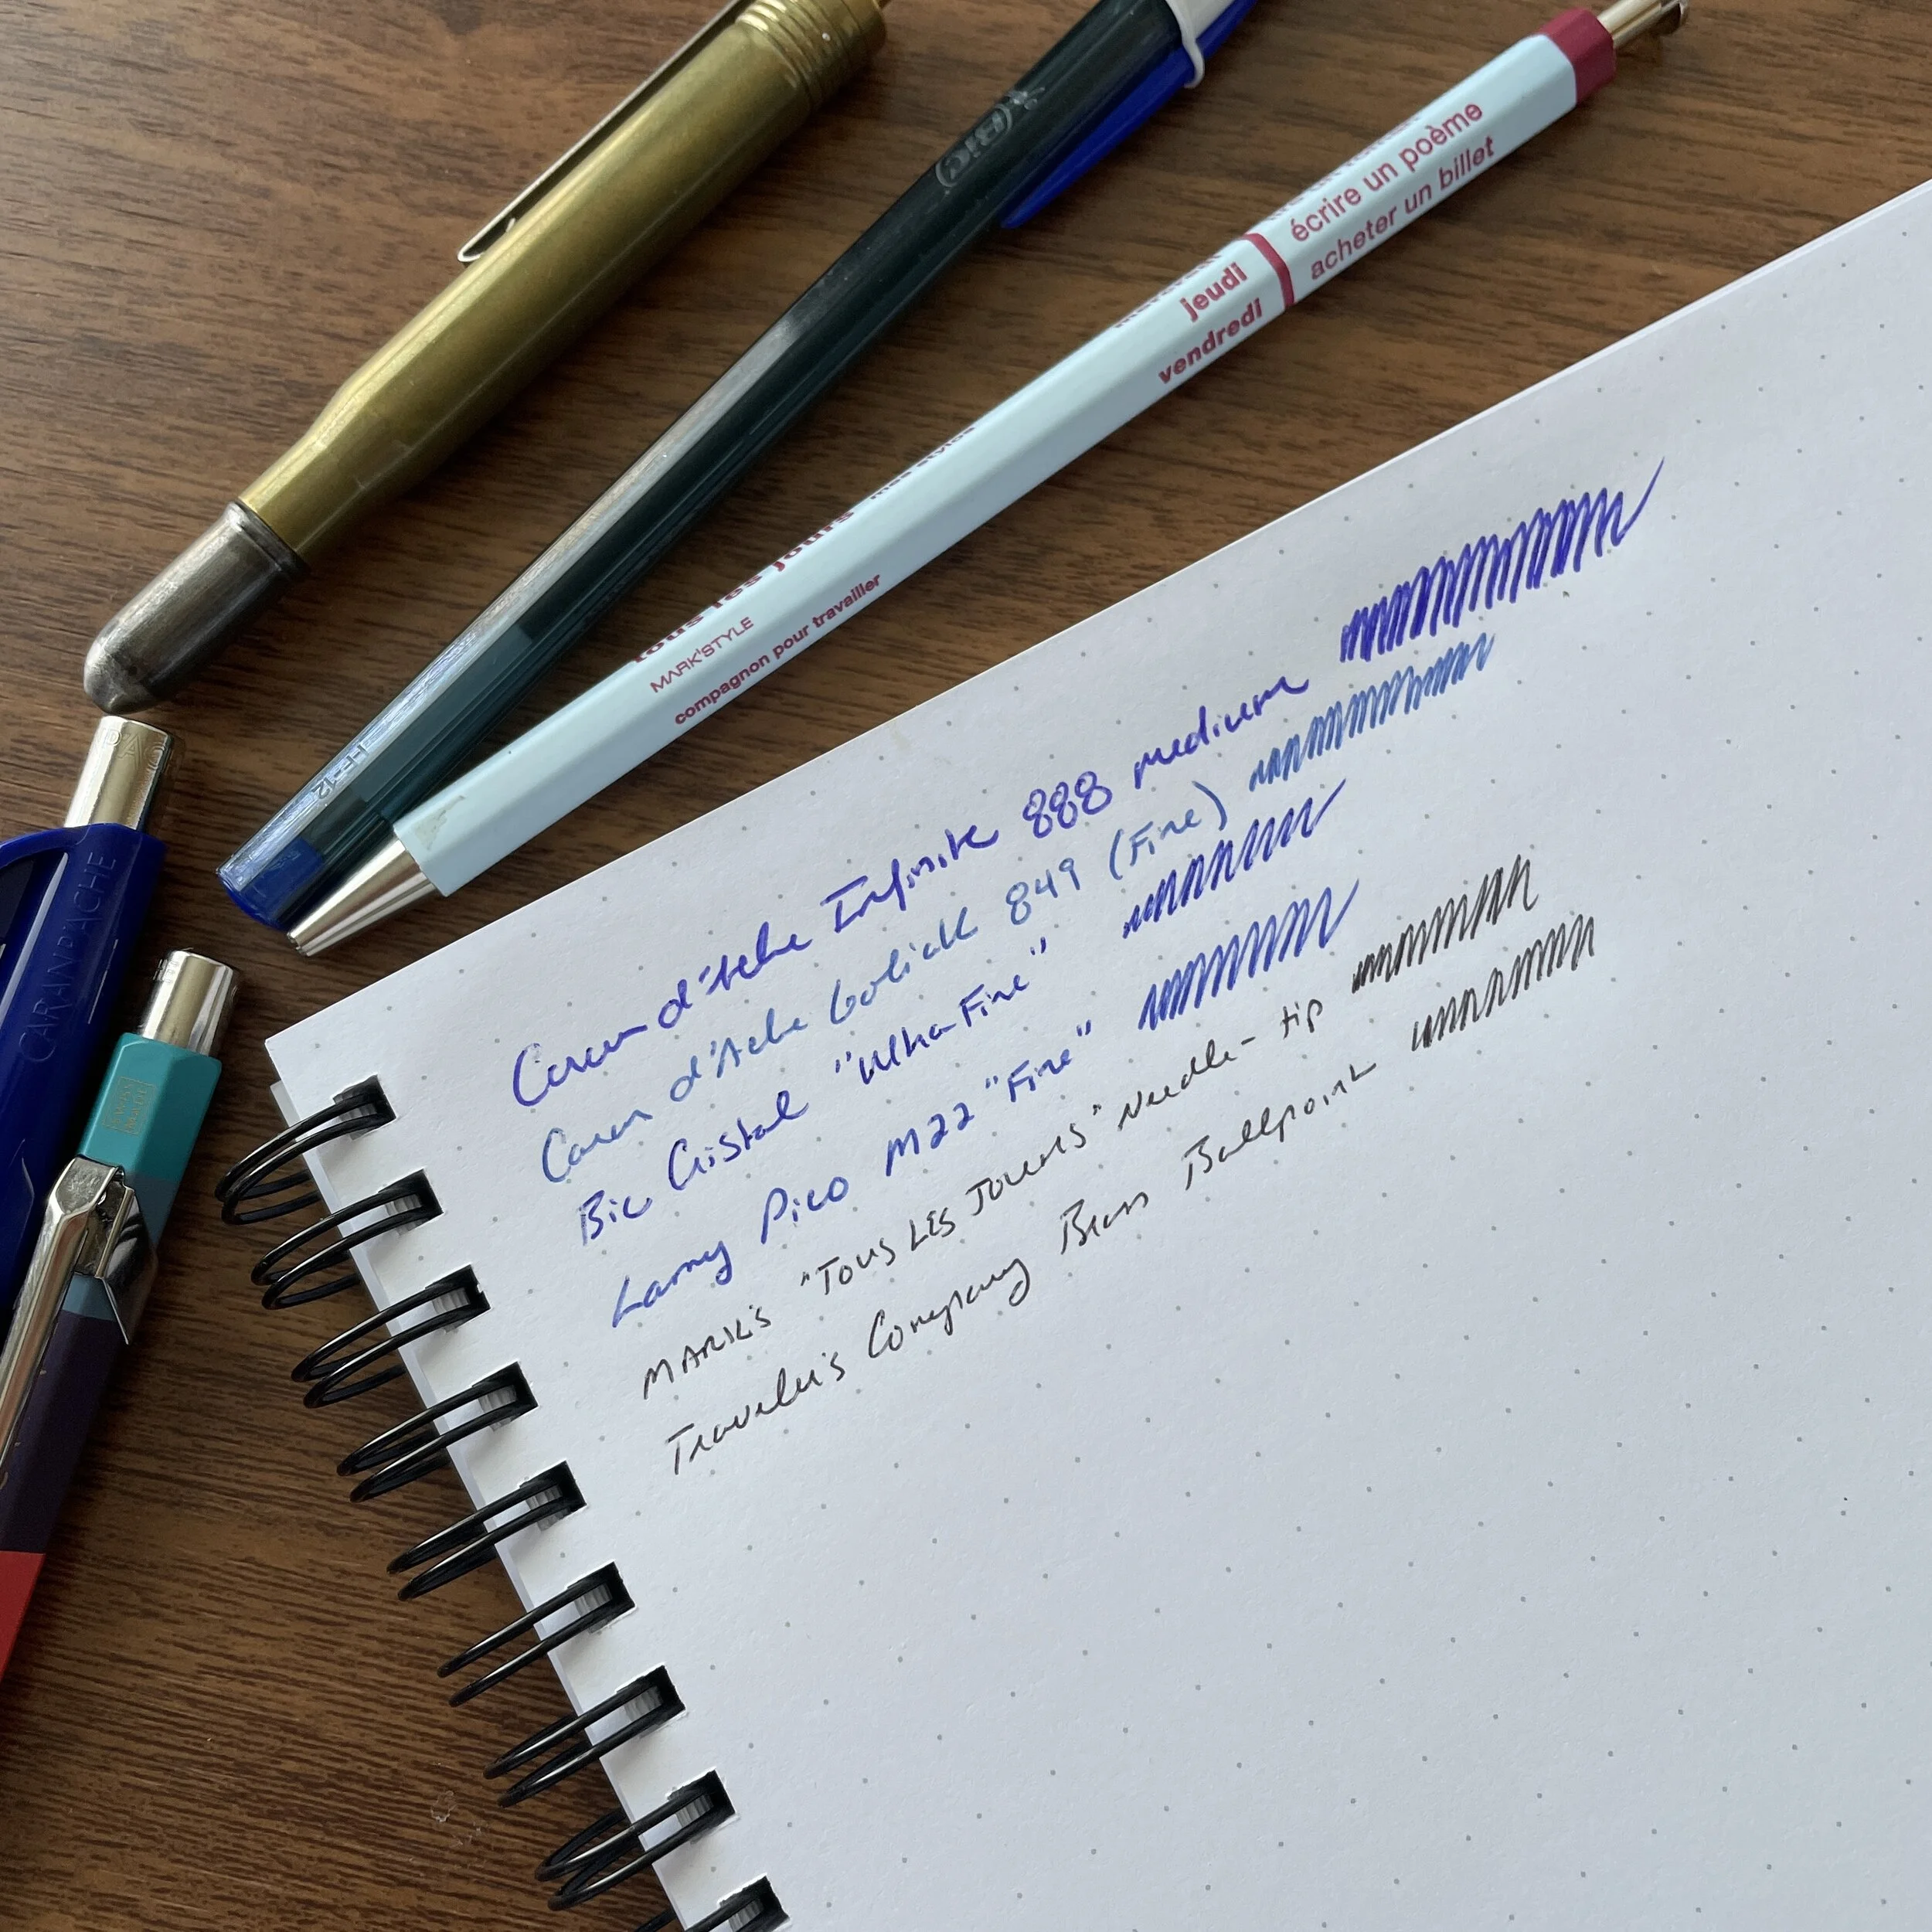 BIC
écrire un poème
acheter un billet
jeudi
vendredi
tous les jours
mes stylos
MARK'STYLE
compagnon pour travailler
CARAN D'ACHE
Caran d'Ache Infinite 888 medium
Caran d'Ache Goliath 849 (Fine)
Bic Cristal "Ultra-Fine"
Lamy Pico M22 "Fine"
MARK'S "TOUS LES JOURS" Needle-tip
Traveler's Company Brass Ballpoint